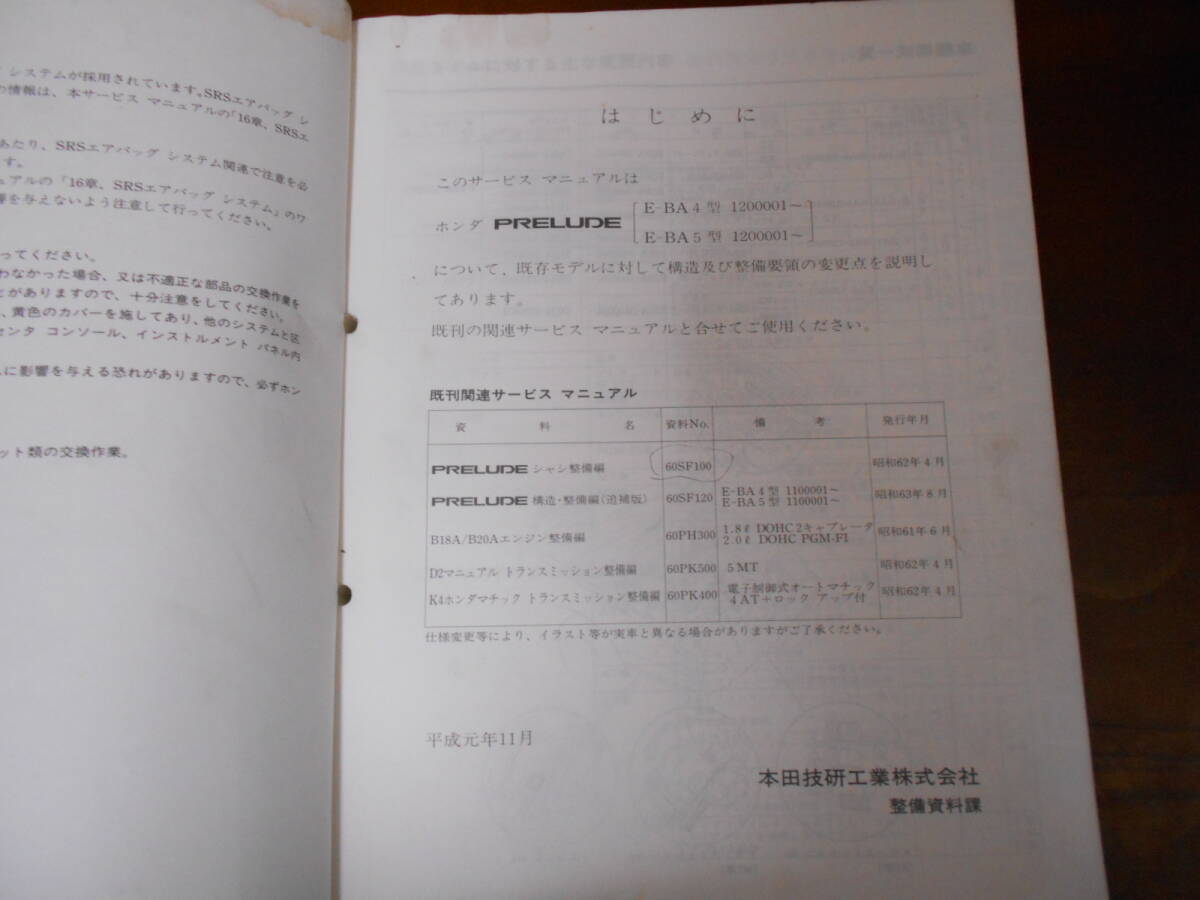 システムが採用されています。SRSエアバッグ シ
の情報は、本サービス マニュアルの「16章、SRSエ
あたり、SRSエアバッグ システム関連で注意を必
ます。
ュアルの「16章、SRSエアバッグ システム」のワ
響を与えないよう注意して行ってください。
ってください。
わなかった場合、又は不適正な部品の交換作業を
とがありますので、十分注意をしてください。
、黄色のカバーを施してあり、他のシステムと区
センタ コンソール、インストルメント パネル内
に影響を与える恐れがありますので、必ずホン
ット類の交換作業。
はじめに
このサービス マニュアルは
ホンダ PRELUDE
E-BA4型 1200001~
E-BA5型 1200001~
について、既存モデルに対して構造及び整備要領の変更点を説明し
てあります。
既刊の関連サービス マニュアルと合せてご使用ください。
既刊関連サービス マニュアル
資料名 資料No. 備考 発行年月
PRELUDE シャシ整備編 60SF100 昭和62年4月
PRELUDE 構造・整備編(追補版) 60SF120 E-BA4型 1100001~ E-BA5型 1100001~ 昭和63年8月
B18A/B20Aエンジン整備編 60PH300 1.8ℓ DOHC 2キャブレータ 2.0ℓ DOHC PGM-FI 昭和61年6月
D2マニュアル トランスミッション整備編 60PK500 5MT 昭和62年4月
K4ホンダマチック トランスミッション整備編 60PK400 電子制御式オートマチック 4AT+ロック アップ付 昭和62年4月
仕様変更等により、イラスト等が実車と異なる場合がありますがご了承ください。
平成元年11月
本田技研工業株式会社
整備資料課